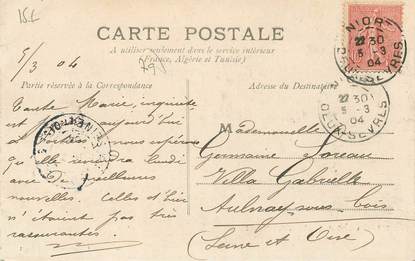 CARTE POSTALE
A utiliser seulement dans le service intérieur
(France, Algérie et Tunisie)
5/3 04
Partie réservée à la Correspondance
Adresse du Destinataire
NIORT
22 30
5 -3
04
DEUX-SÈVRES
22 30
5 -3
04
DEUX-SÈVRES
Tante Marie, inquiète
est aujourd'hui
à Poitiers nous espérons
qu'elle reviendra lundi
avec de meilleures
nouvelles. Celles d'hier
n'étaient pas très
rassurantes.
Mademoiselle
Germaine Loreau
Villa Gabrielle
Aulnay-sous-Bois
(Seine et Oise)